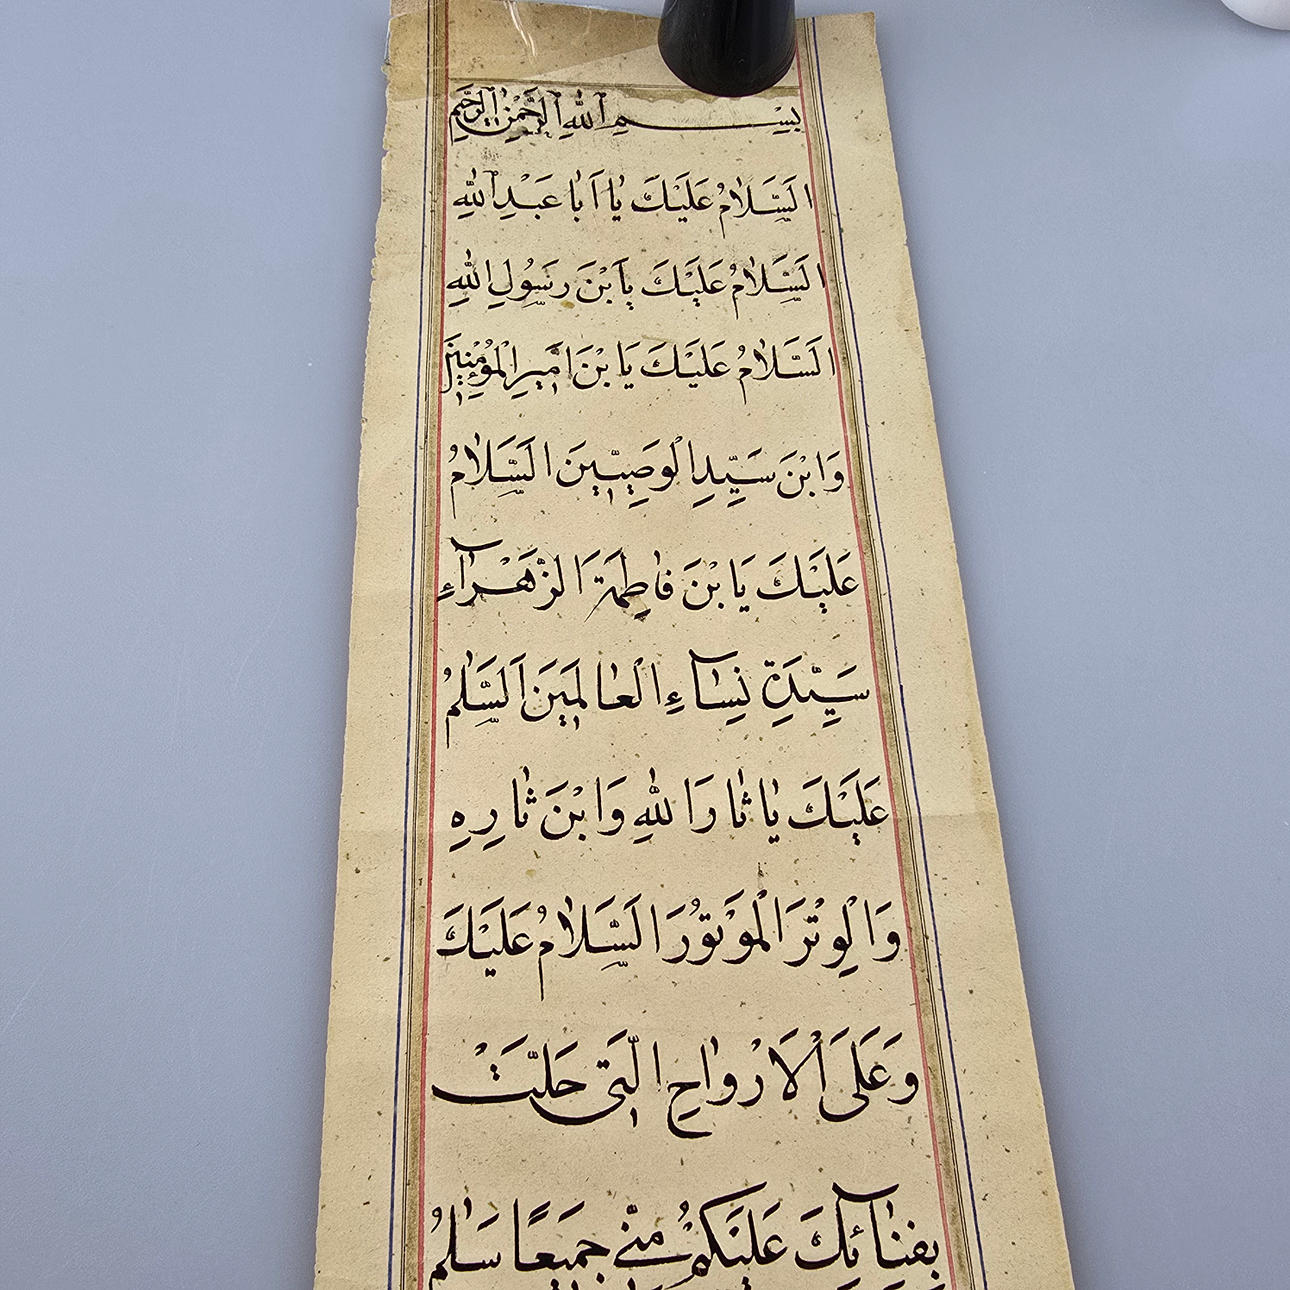 بِسْمِ اللهِ الرَّحْمٰنِ الرَّحِيمِ
اَلسَّلَامُ عَلَيْكَ يَا اَبَا عَبْدِاللهِ
اَلسَّلَامُ عَلَيْكَ يَابْنَ رَسُولِ اللهِ
اَلسَّلَامُ عَلَيْكَ يَابْنَ اَمِيرِ الْمُؤْمِنِينَ
وَابْنَ سَيِّدِ الْوَصِيِّينَ اَلسَّلَامُ
عَلَيْكَ يَابْنَ فَاطِمَةَ الزَّهْرَآءِ
سَيِّدَةِ نِسَآءِ الْعَالَمِينَ اَلسَّلٰمُ
عَلَيْكَ يَا ثَارَ اللهِ وَابْنَ ثَارِهِ
وَالْوِتْرَ الْمَوْتُورَ اَلسَّلَامُ عَلَيْكَ
وَعَلَى الْاَرْوَاحِ الَّتِي حَلَّتْ
بِفِنَآئِكَ عَلَيْكُمْ مِنِّي جَمِيعًا سَلٰمُ